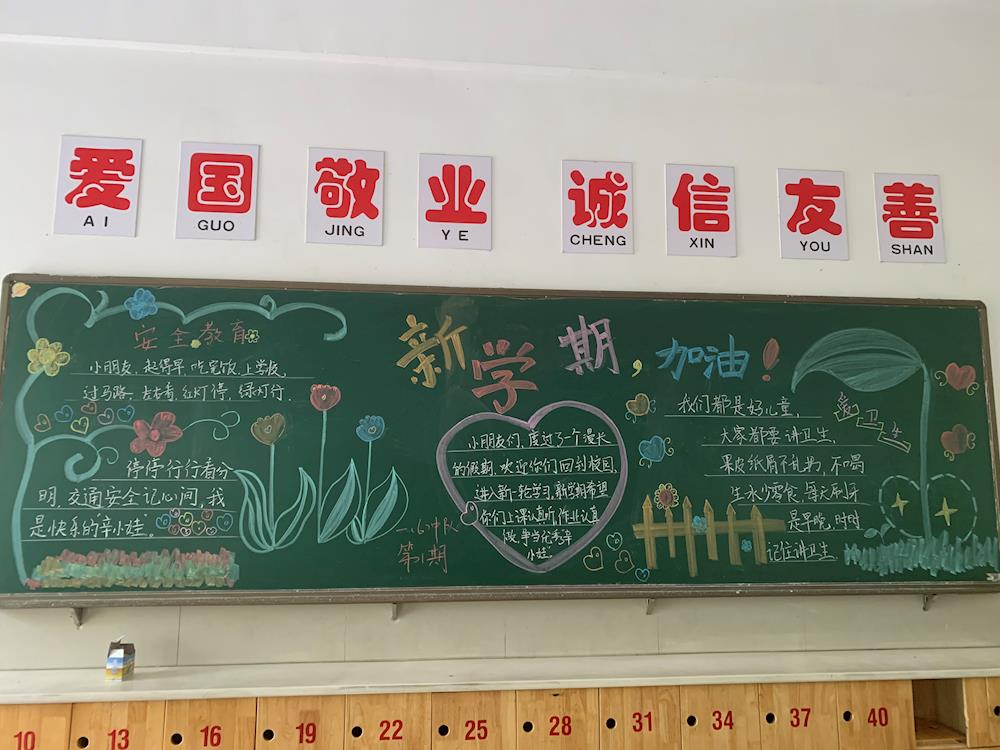 爱 国 敬 业 诚 信 友 善
AI GUO JING YE CHENG XIN YOU SHAN
安全教育
小朋友，起得早，吃完饭，上学校，
过马路，左右看，红灯停，绿灯行．
停停行行看分
明，交通安全记心间，我
是快乐的辛小娃。
新学期，加油！
小朋友们，度过了一个漫长
的假期，欢迎你们回到校园，
进入新一轮学习，新学期希望
你们上课认真听，作业认真
做，争当优秀辛
小娃。
一、(6)中队
第1期
爱卫生
我们都是好儿童，
大家都要讲卫生，
果皮纸屑不乱扔，不喝
生水少零食，每天刷牙
是早晚，时时
记住讲卫生．
10 13 16 19 22 25 28 31 34 37 40